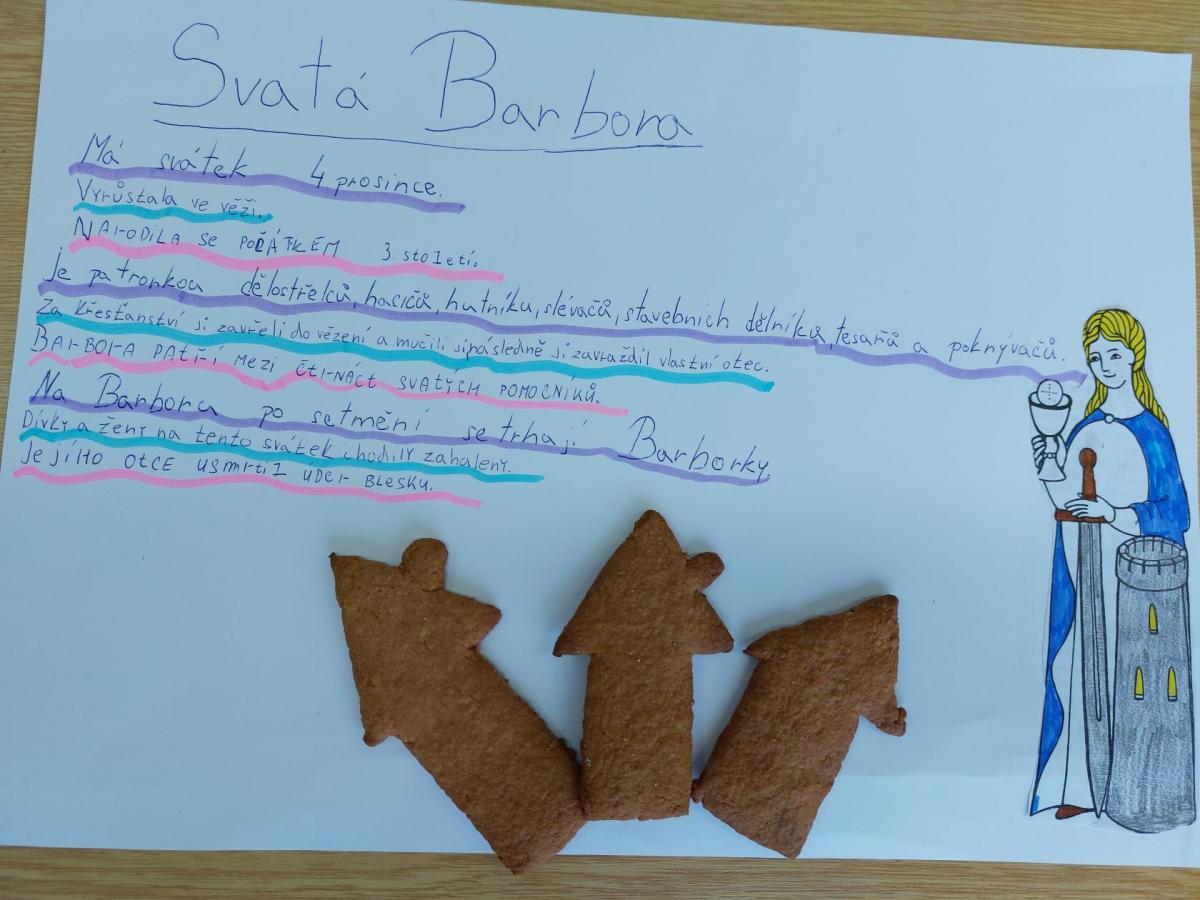 Svatá Barbora
Má svátek 4. prosince.
Vyrůstala ve věži.
NArODiLA se POČÁTKEM 3. století.
Je patronkou dělostřelců, hasičů, hutníku, slévačů, stavebních dělníků, tesařů a pokrývačů.
Za křesťanství ji zavřeli do vězení a mučili ji následně ji zavraždil vlastní otec.
BArBOrA PATŘÍ MEZI ČtrNáct SVATÝCH POMOCNÍKŮ.
Na Barboru po setmění se trhají Barborky.
Dívky a ženy na tento svátek chodily zahaleny.
JeJÍHO OTCE USMrTIL ÚDEr BLESKU.